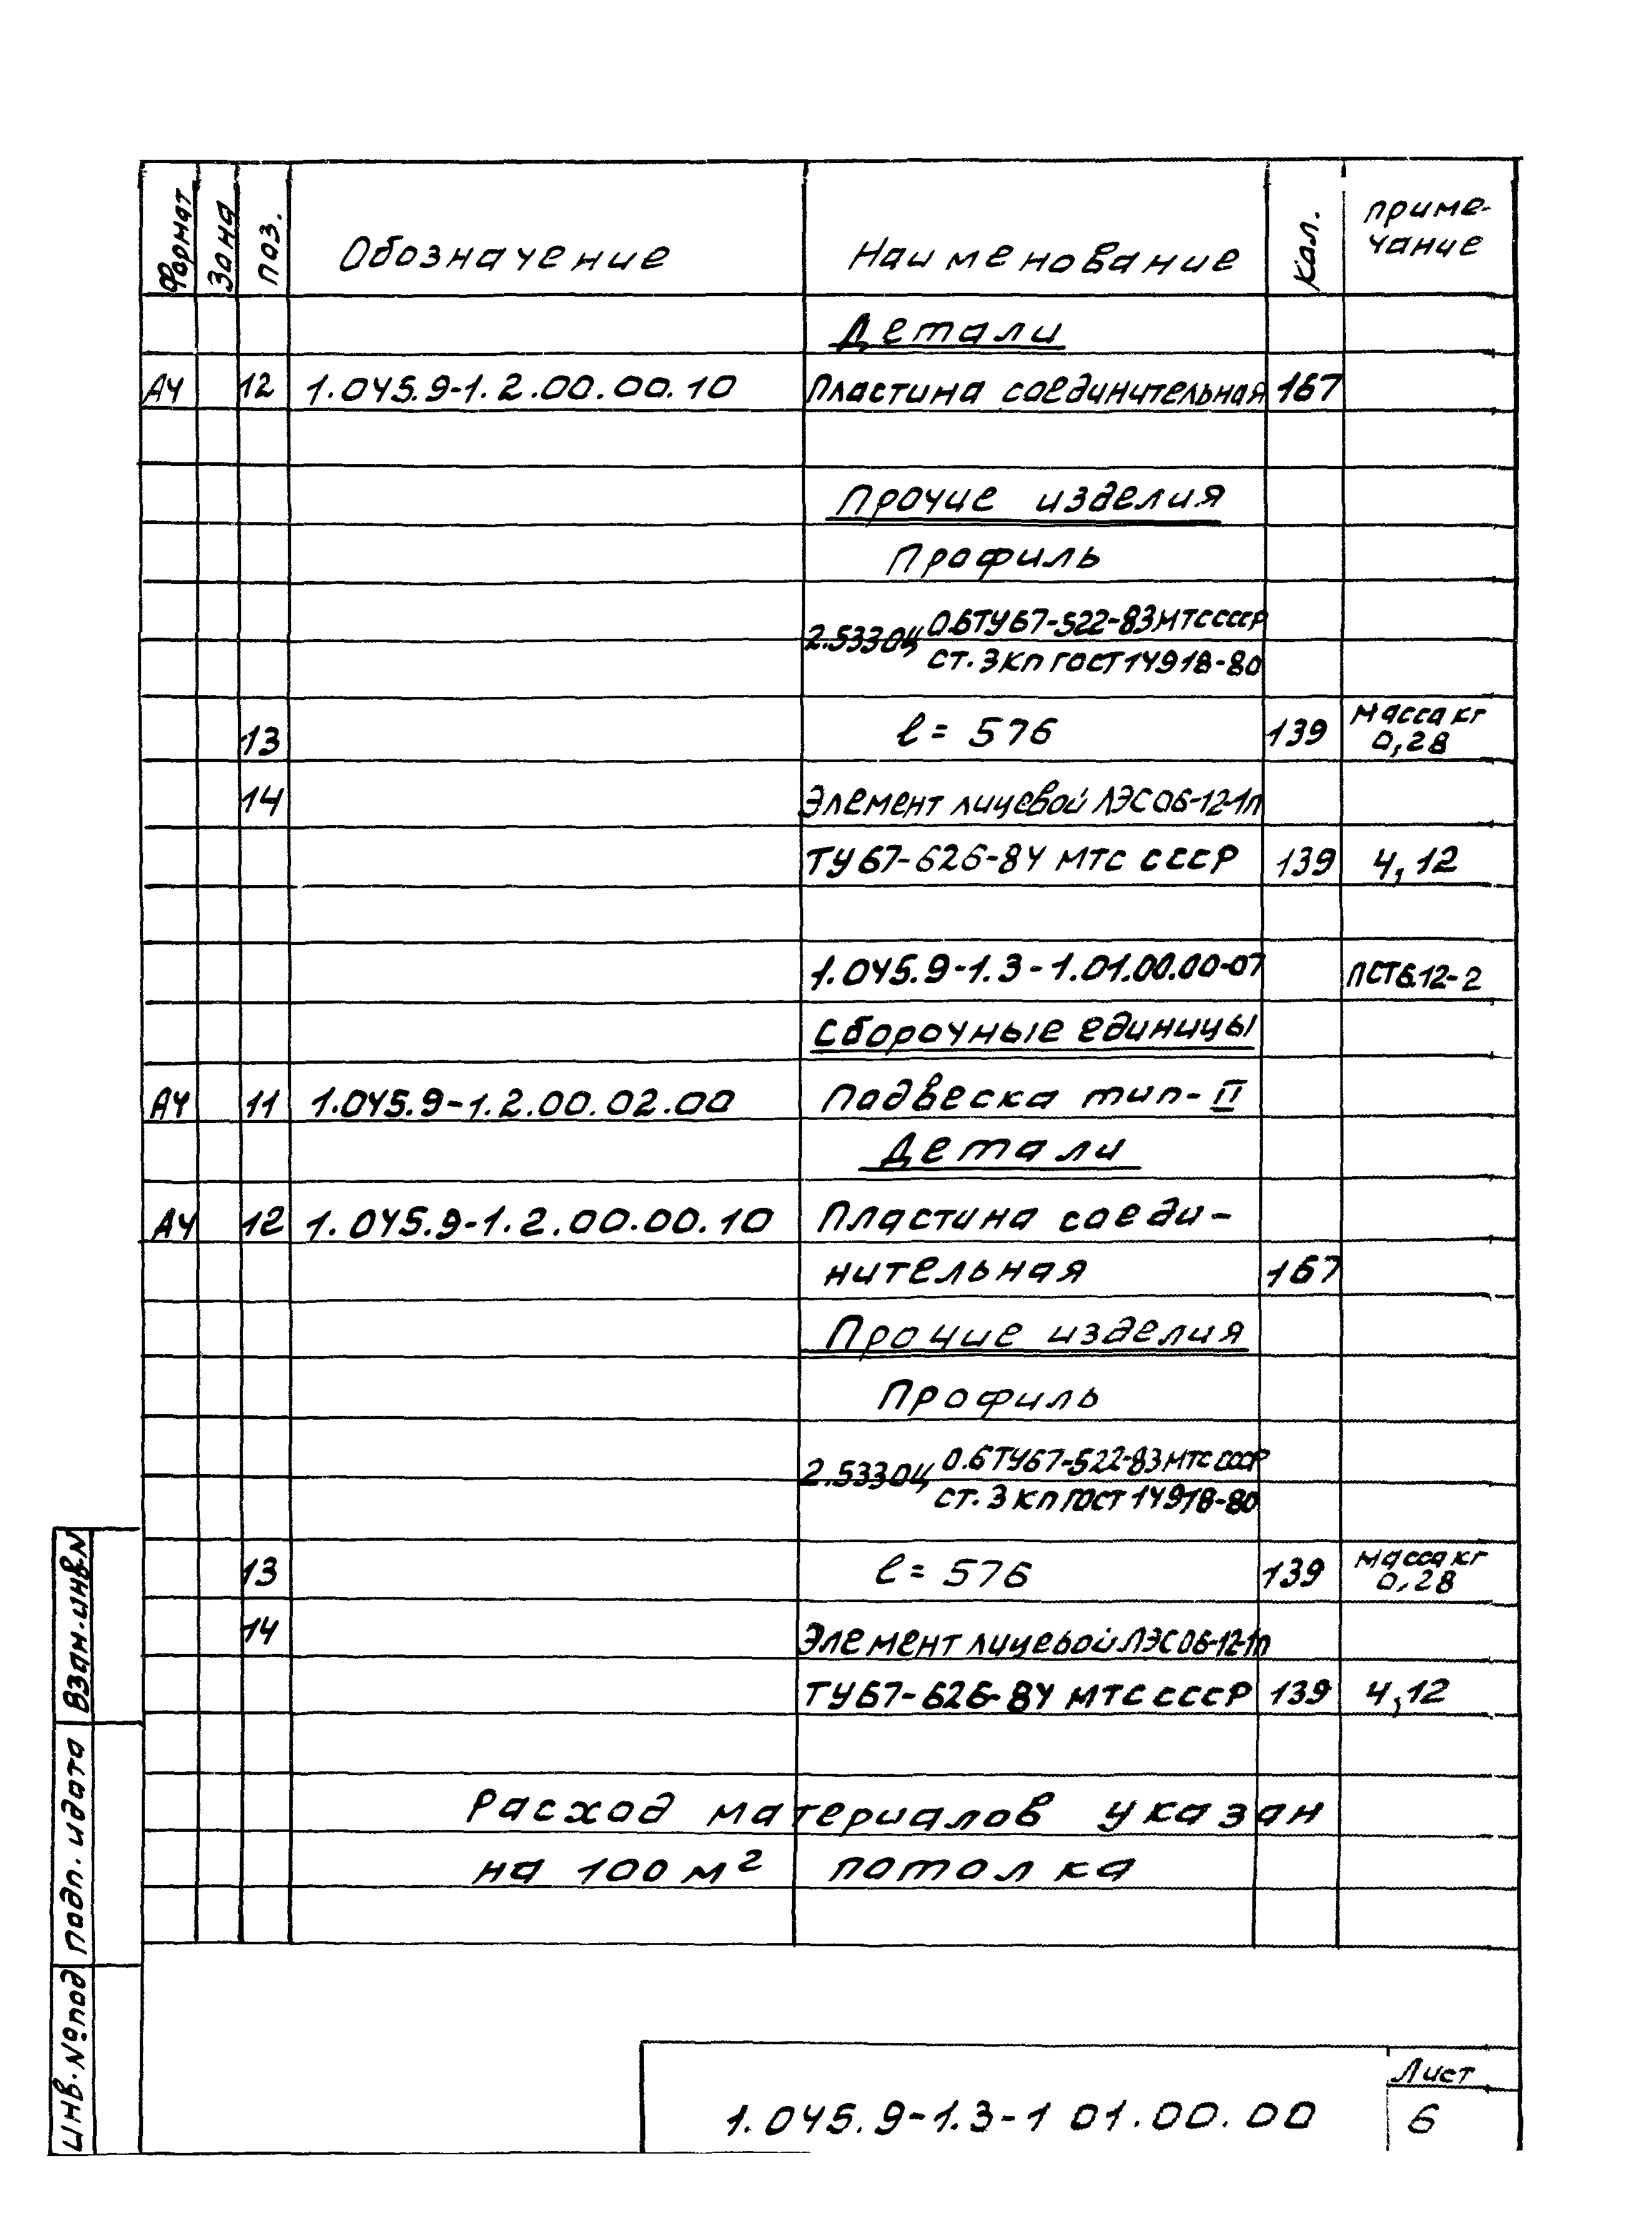 Формат Зона Поз. Обозначение Наименование Кол. Приме-
чание
Детали
А4 12 1.045.9-1.2.00.00.10 Пластина соединительная 167
Прочие изделия
Профиль
2.5330ц 0.6ТУ67-522-83МТС СССР
ст.3кп ГОСТ 14918-80
13 ℓ= 576 139 Масса кг
0,28
14 Элемент лицевой ЛЭС06-12-1п
ТУ67-626-84 МТС СССР 139 4,12
1.045.9-1.3-1.01.00.00-07 ПСТ6.12-2
Сборочные единицы
А4 11 1.045.9-1.2.00.02.00 Подвеска тип-II
Детали
А4 12 1.045.9-1.2.00.00.10 Пластина соеди-
нительная 167
Прочие изделия
Профиль
2.5330ц 0.6ТУ67-522-83МТС СССР
ст.3кп ГОСТ 14918-80
13 ℓ= 576 139 Масса кг
0,28
14 Элемент лицевой ЛЭС06-12-1п
ТУ67-626-84 МТС СССР 139 4,12
Расход материалов указан
на 100 м² потолка
Взам.инв.N
Подп. и дата
Инв.№под
1.045.9-1.3-1 01.00.00
Лист
6